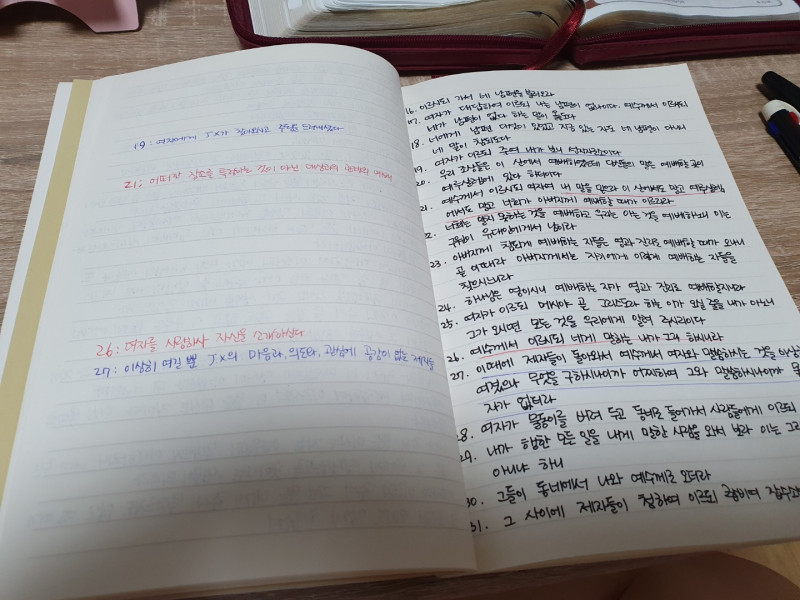 19: 여자에게 JX가
21: 어떠한 장소를 특정하는 것이 아닌
26: 여자를 사랑하사 자신을 소개하셨다.
27: 이상히 여길 뿐 JX의 마음과, 의도와, 관심에 공감이 없는 제자들
16. 이르시되 가서 네 남편을 불러오라
17. 여자가 대답하여 이르되 나는 남편이 없나이다. 예수께서 이르시되
네가 남편이 없다 하는 말이 옳도다
18. 너에게 남편 다섯이 있었고 지금 있는 자도 네 남편이 아니니
네 말이 참되도다
19. 여자가 이르되 주여 내가 보니 선지자로소이다
20. 우리 조상들은 이 산에서 예배하였는데 당신들의 말은 예배할 곳이
예루살렘에 있다 하더이다
21. 예수께서 이르시되 여자여 내 말을 믿으라 이 산에서도 말고 예루살렘
에서도 말고 너희가 아버지께 예배할 때가 이르리라
22. 너희는 알지 못하는 것을 예배하고 우리는 아는 것을 예배하노니 이는
구원이 유대인에게서 남이라
23. 아버지께 참되게 예배하는 자들은 영과 진리로 예배할 때가 오나니
곧 이때라 아버지께서는 자기에게 이렇게 예배하는 자들을
찾으시느니라
24. 하나님은 영이시니 예배하는 자가 영과 진리로 예배할지니라
25. 여자가 이르되 메시야 곧 그리스도라 하는 이가 오실 줄을 내가 아노니
그가 오시면 모든 것을 우리에게 알려 주시리이다
26. 예수께서 이르시되 네게 말하는 내가 그라 하시니라
27. 이때에 제자들이 돌아와서 예수께서 여자와 말씀하시는 것을 이상
여겼으나 무엇을 구하시나이까 어찌하여 그와 말씀하시나이까 묻
자가 없더라
28. 여자가 물동이를 버려 두고 동네로 들어가서 사람들에게 이르되
29. 내가 행한 모든 일을 내게 말한 사람을 와서 보라 이는 그리
아니냐 하니
30. 그들이 동네에서 나와 예수께로 오더라
31. 그 사이에 제자들이 청하여 이르되 랍비여 잡수